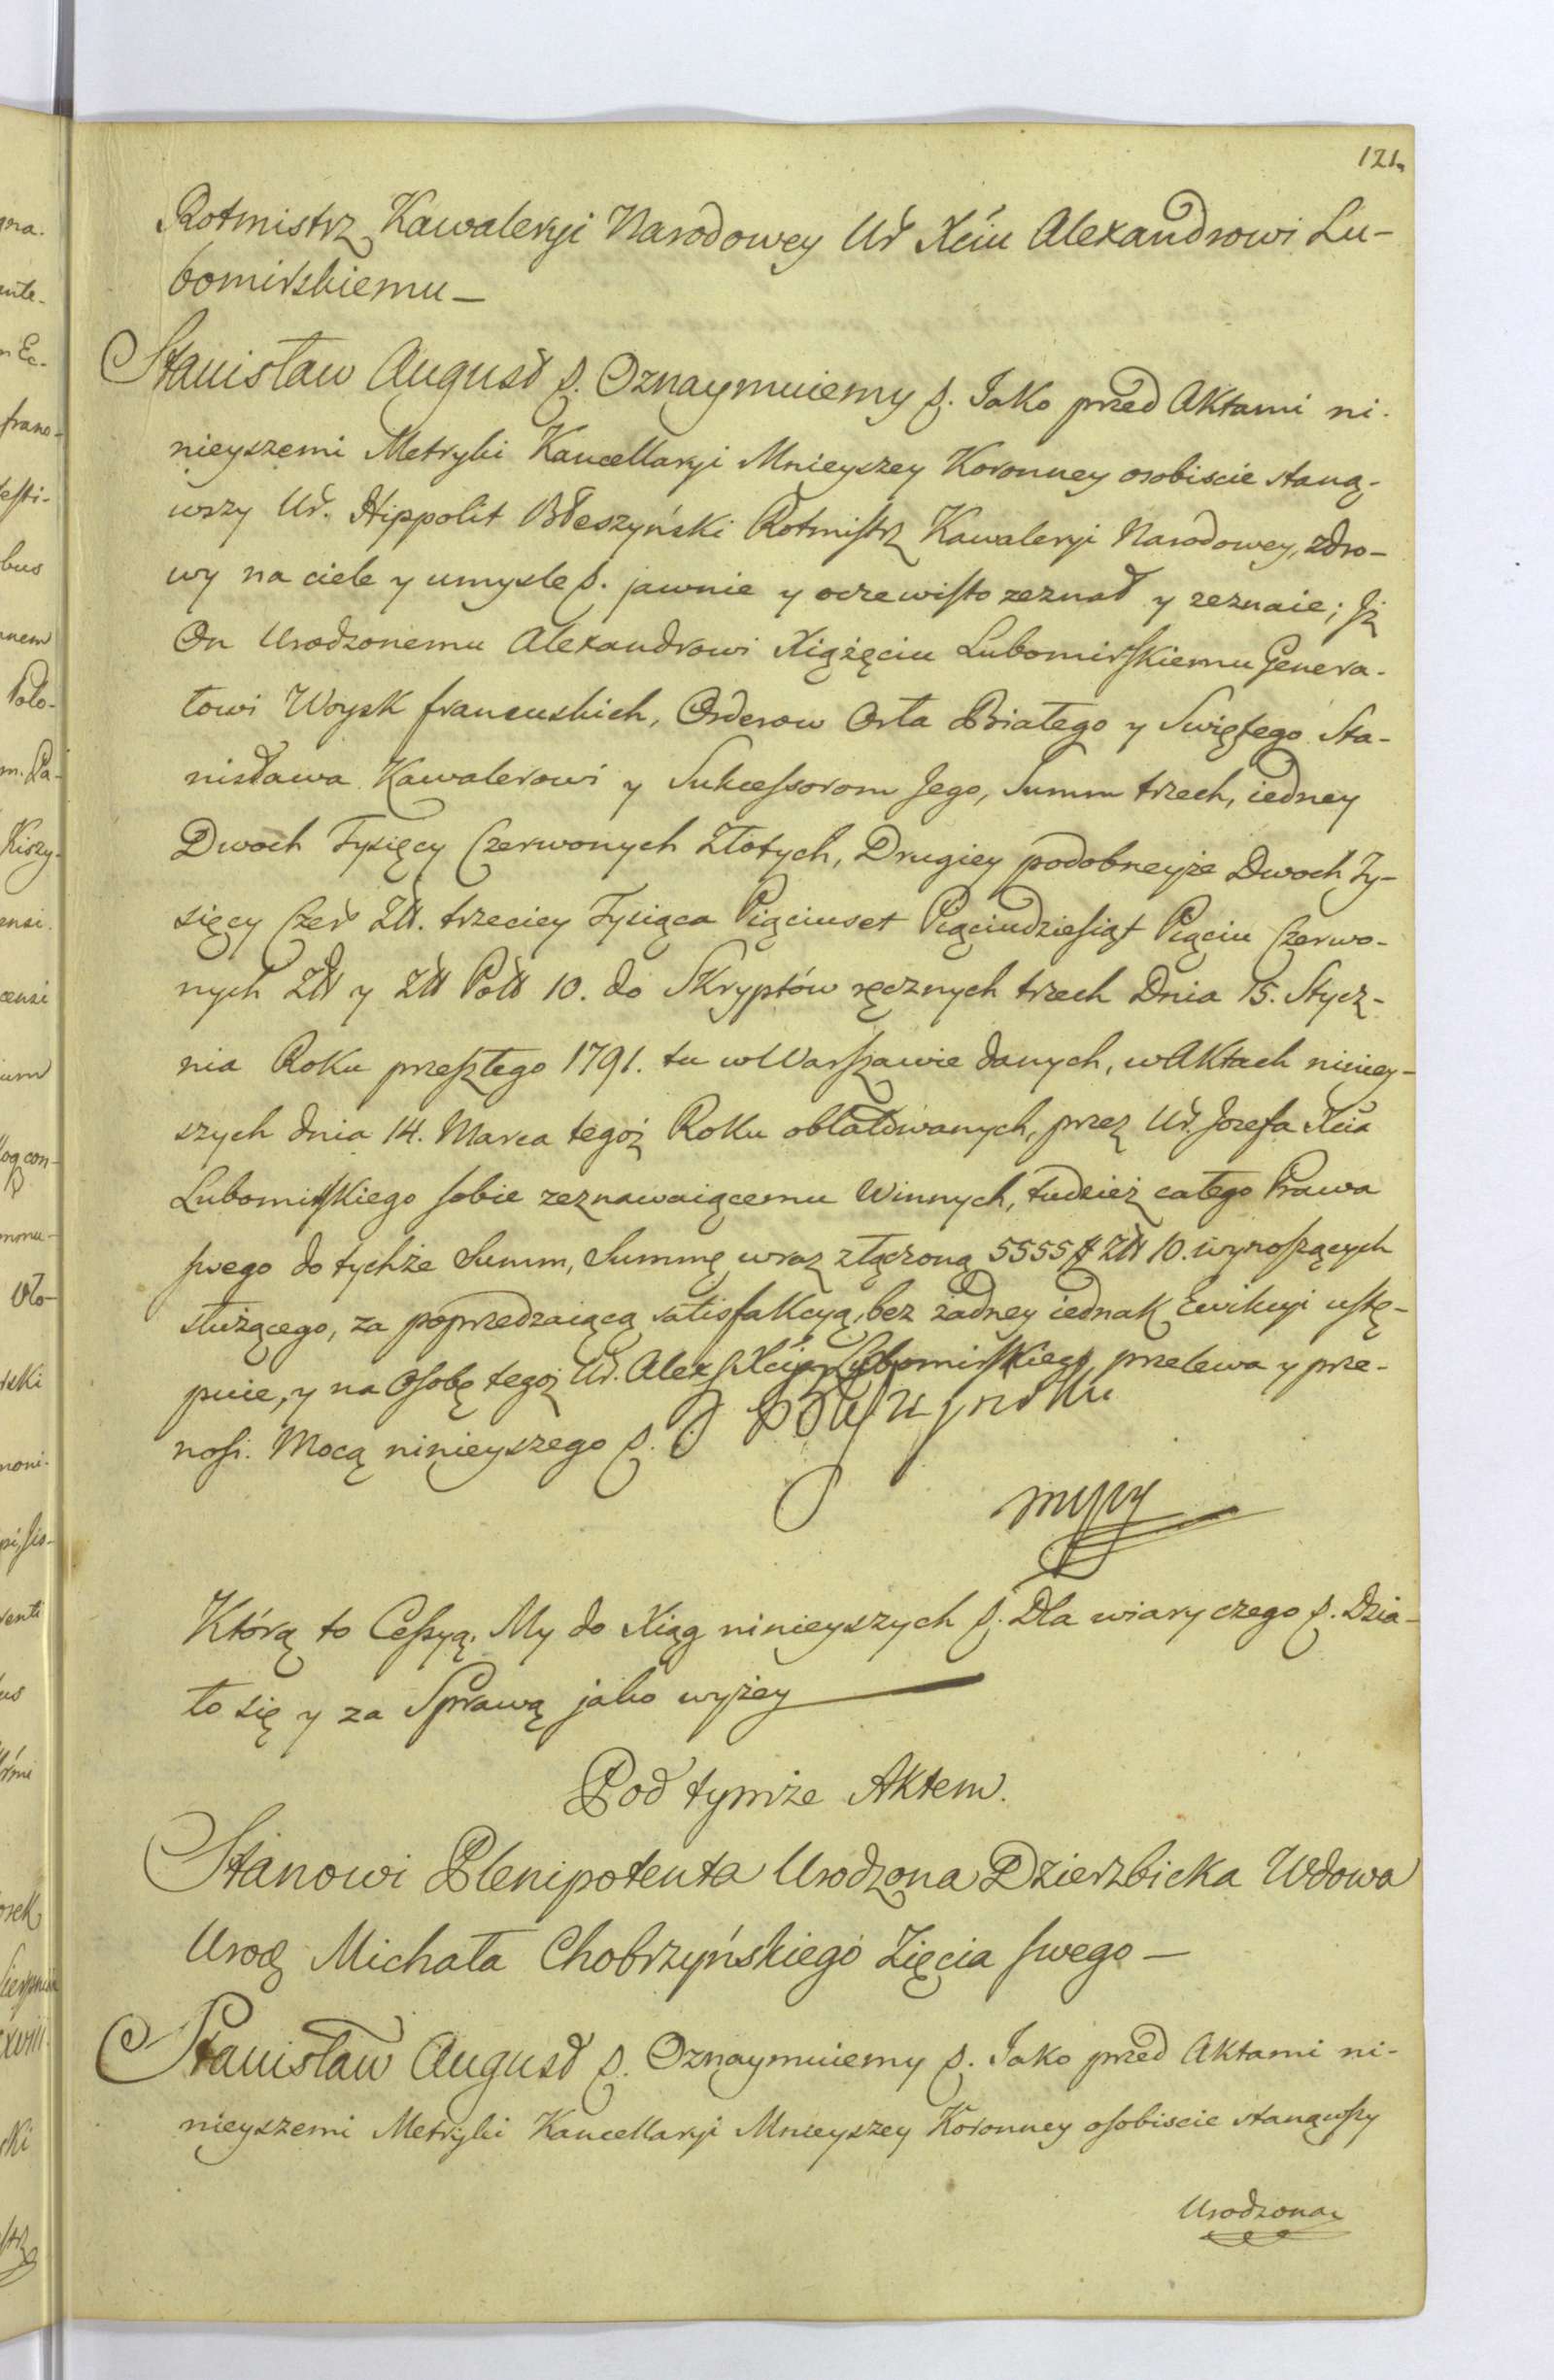 121.
Rotmistrz Kawaleryi Narodowey Ur Xciu Alexandrowi Lu-
bomirskiemu —
Stanisław August p. Oznaymuiemy p. Jako przed Aktami ni-
nieyszemi Metryki Kancellaryi Mnieyszey Koronney osobiscie staną-
wszy Ur. Hippolit Błeszyński Rotmistrz Kawaleryi Narodowey, zdro-
wy na ciele y umysle p. jawnie y oczewisto zeznał y zeznaie; Jż
On Urodzonemu Alexandrowi Xiążęciu Lubomirskiemu Genera-
łowi Woysk francuskich, Orderow Orła Białego y Swiętego Sta-
nisława Kawalerowi y Sukcessorom Jego, Summ trzech, iedney
Dwoch Tysięcy Czerwonych Złotych, Drugiey podobneyże Dwoch Ty-
sięcy Czer Złł. trzeciey Tysiąca Pięciuset Pięciudziesiąt Pięciu Czerwo-
nych Złł y Złł Pol 10. do Skryptów ręcznych trzech Dnia 15. Stycz-
nia Roku przeszłego 1791. tu w Warszawie danych, w Aktach niniey-
szych dnia 14. Marca tegoż Roku oblatowanych, przez Ur. Jozefa Xcia
Lubomirskiego sobie zeznawaiącemu Winnych, tudzież całego Prawa
swego do tychże Summ, Summę wraz złączoną 5555 # Złł 10. wynoszących
służącego, za poprzedzaiącą satisfakcyą, bez żadney iednak Ewikcyi ustę-
puie, y na Osobę tegoż Ur. Alex Xcia Lubomirskiego przelewa y prze-
nosi. Mocą ninieyszego p.
mppy
Którą to Cessyą, My do Xiąg ninieyszych p. Dla wiary czego p. Dzia-
ło się y za Sprawą jako wyżey
Pod tymże Aktem.
Stanowi Plenipotenta Urodzona Dzierzbicka Wdowa
Urodz Michała Chobrzyńskiego Zięcia swego —
Stanisław August p. Oznaymuiemy p. Jako przed Aktami ni-
nieyszemi Metryki Kancellaryi Mnieyszey Koronney osobiscie stanąwszy
Urodzona